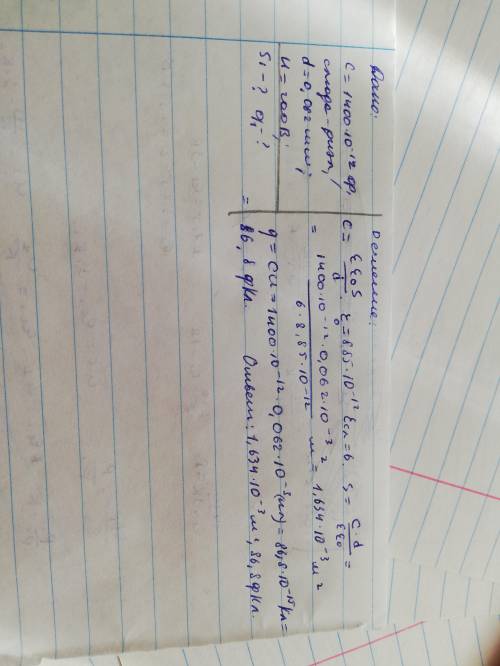 Дано:
C = 1400·10⁻¹² ф,
слюда - диэл,
d = 0,062 мм;
U = 200 В;
S₁ - ? q₁ - ?
Решение:
C = εε₀S/d. ε₀ = 8,85·10⁻¹² εсл = 6. S = C·d/εε₀ =
= 1400·10⁻¹²·0,062·10⁻³/6·8,85·10⁻¹² м² = 1,634·10⁻³ м²
q = CU = 1400·10⁻¹²·0,062·10⁻³(Кл) = 86,8·10⁻¹⁵ Кл =
= 86,8 фКл. Ответ: 1,634·10⁻³ м²; 86,8 фКл.